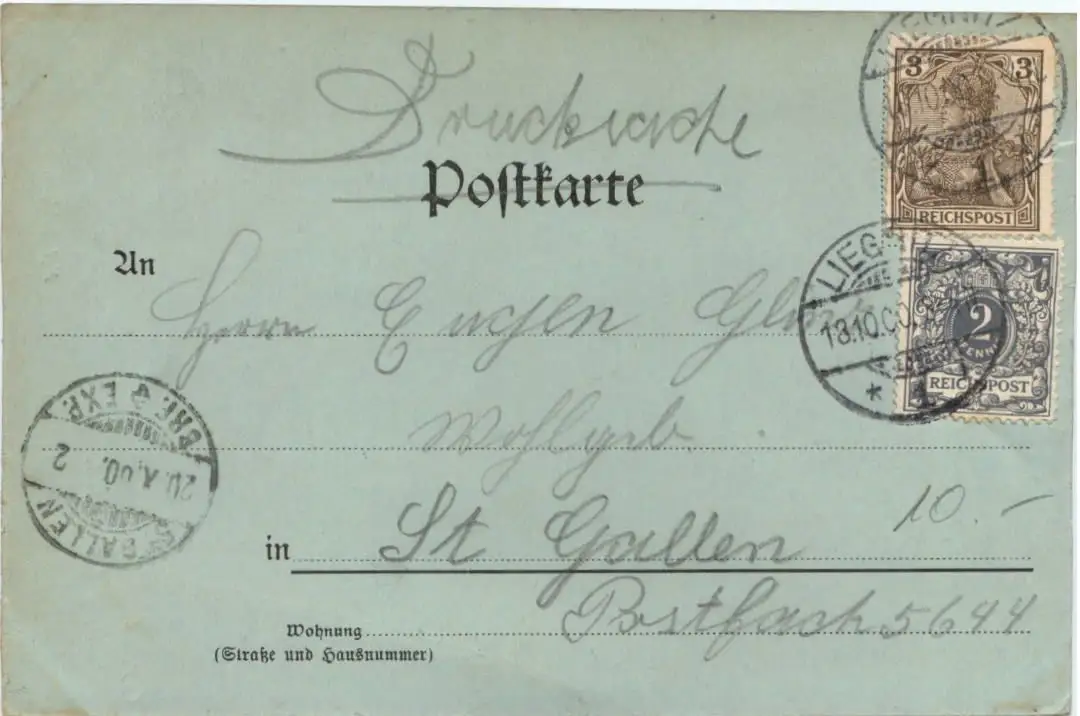 Drucksache
Postkarte
3 3
REICHSPOST
An
Herrn Eugen
LIEGNITZ
18.10.00.
* 1
2
PFENNIG
REICHSPOST
Wohlgeb.
BRF. EXP.
20.X.00. 2
ST GALLEN
10.-
in St Gallen
Wohnung Postfach 5644
(Straße und Hausnummer)